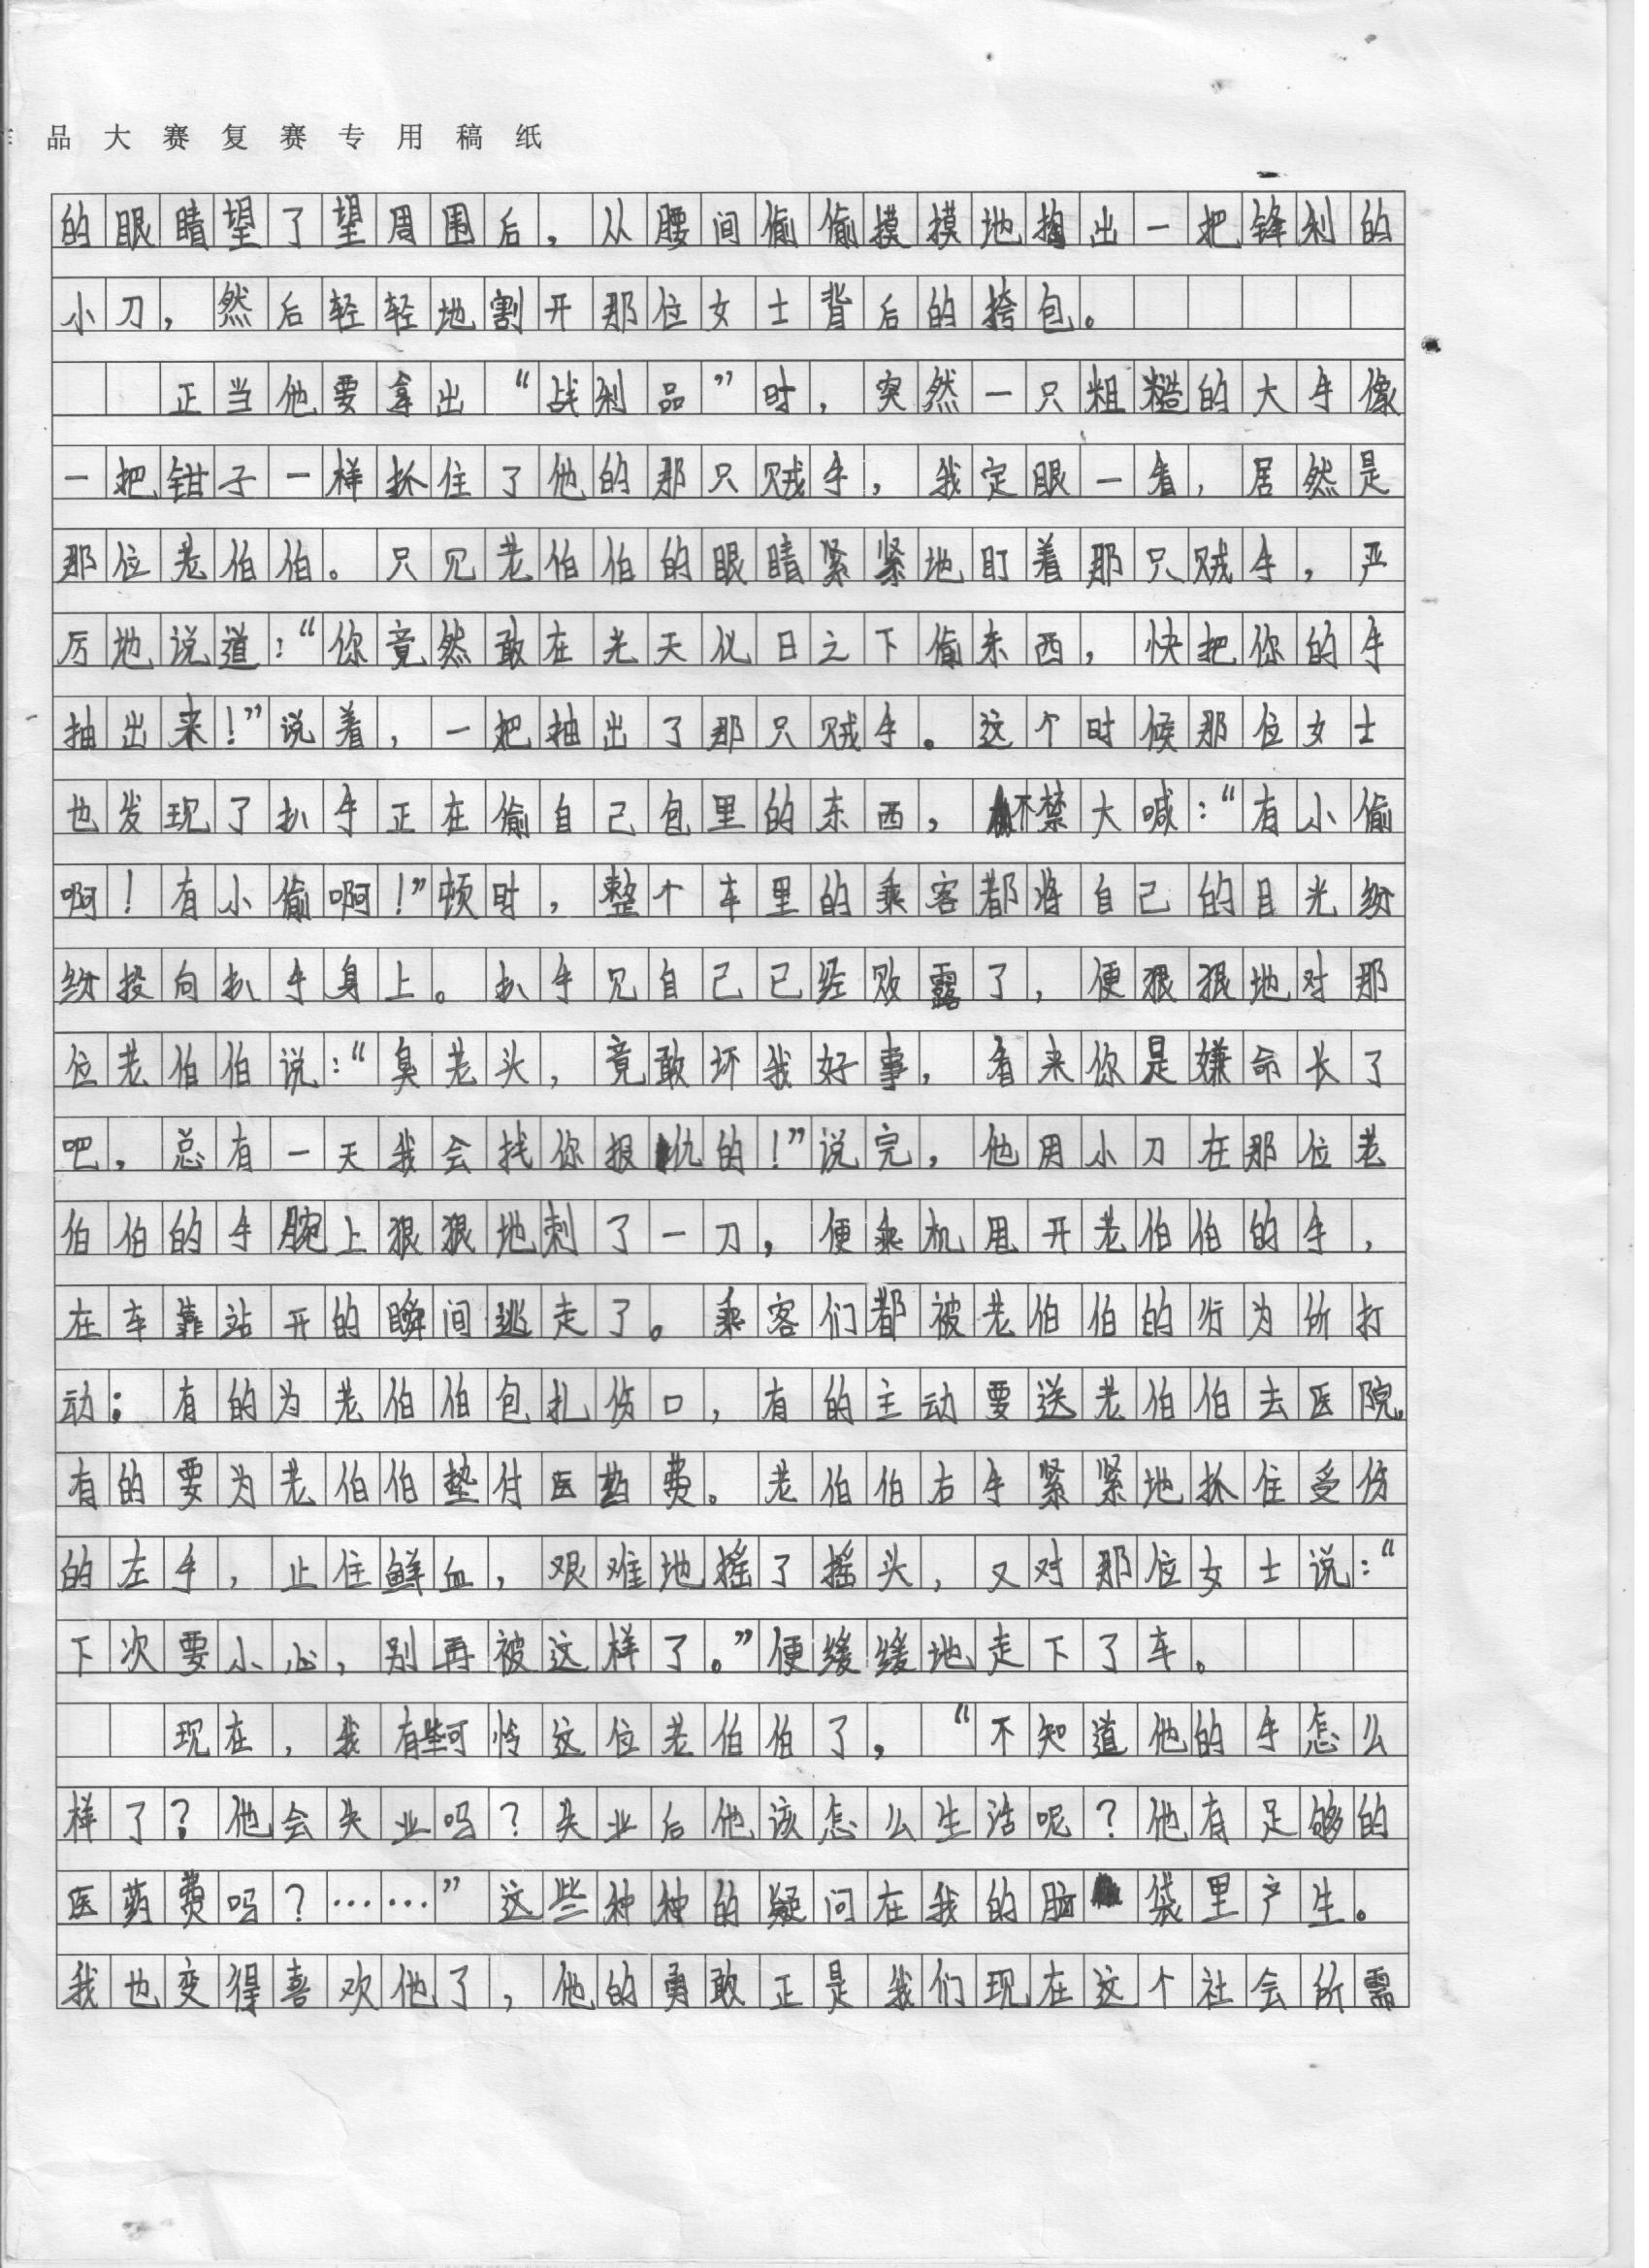 品大赛复赛专用稿纸
的眼睛望了望周围后，从腰间偷偷摸摸地掏出一把锋利的
小刀，然后轻轻地割开那位女士背后的挎包。
正当他要拿出“战利品”时，突然一只粗糙的大手像
一把钳子一样抓住了他的那只贼手，我定眼一看，居然是
那位老伯伯。只见老伯伯的眼睛紧紧地盯着那只贼手，严
厉地说道：“你竟然敢在光天化日之下偷东西，快把你的手
抽出来！”说着，一把抽出了那只贼手。这个时候那位女士
也发现了扒手正在偷自己包里的东西，不禁大喊：“有小偷
啊！有小偷啊！”顿时，整个车里的乘客都将自己的目光纷
纷投向扒手身上。扒手见自己已经败露了，便狠狠地对那
位老伯伯说：“臭老头，竟敢坏我好事，看来你是嫌命长了
吧，总有一天我会找你报仇的！”说完，他用小刀在那位老
伯伯的手腕上狠狠地刺了一刀，便乘机甩开老伯伯的手，
在车靠站开的瞬间逃走了。乘客们都被老伯伯的行为所打
动；有的为老伯伯包扎伤口，有的主动要送老伯伯去医院，
有的要为老伯伯垫付医药费。老伯伯右手紧紧地抓住受伤
的左手，止住鲜血，艰难地摇了摇头，又对那位女士说：“
下次要小心，别再被这样了。”便缓缓地走下了车。
现在，我有些可怜这位老伯伯了，“不知道他的手怎么
样了？他会失业吗？失业后他该怎么生活呢？他有足够的
医药费吗？……”这些种种的疑问在我的脑袋里产生。
我也变得喜欢他了，他的勇敢正是我们现在这个社会所需